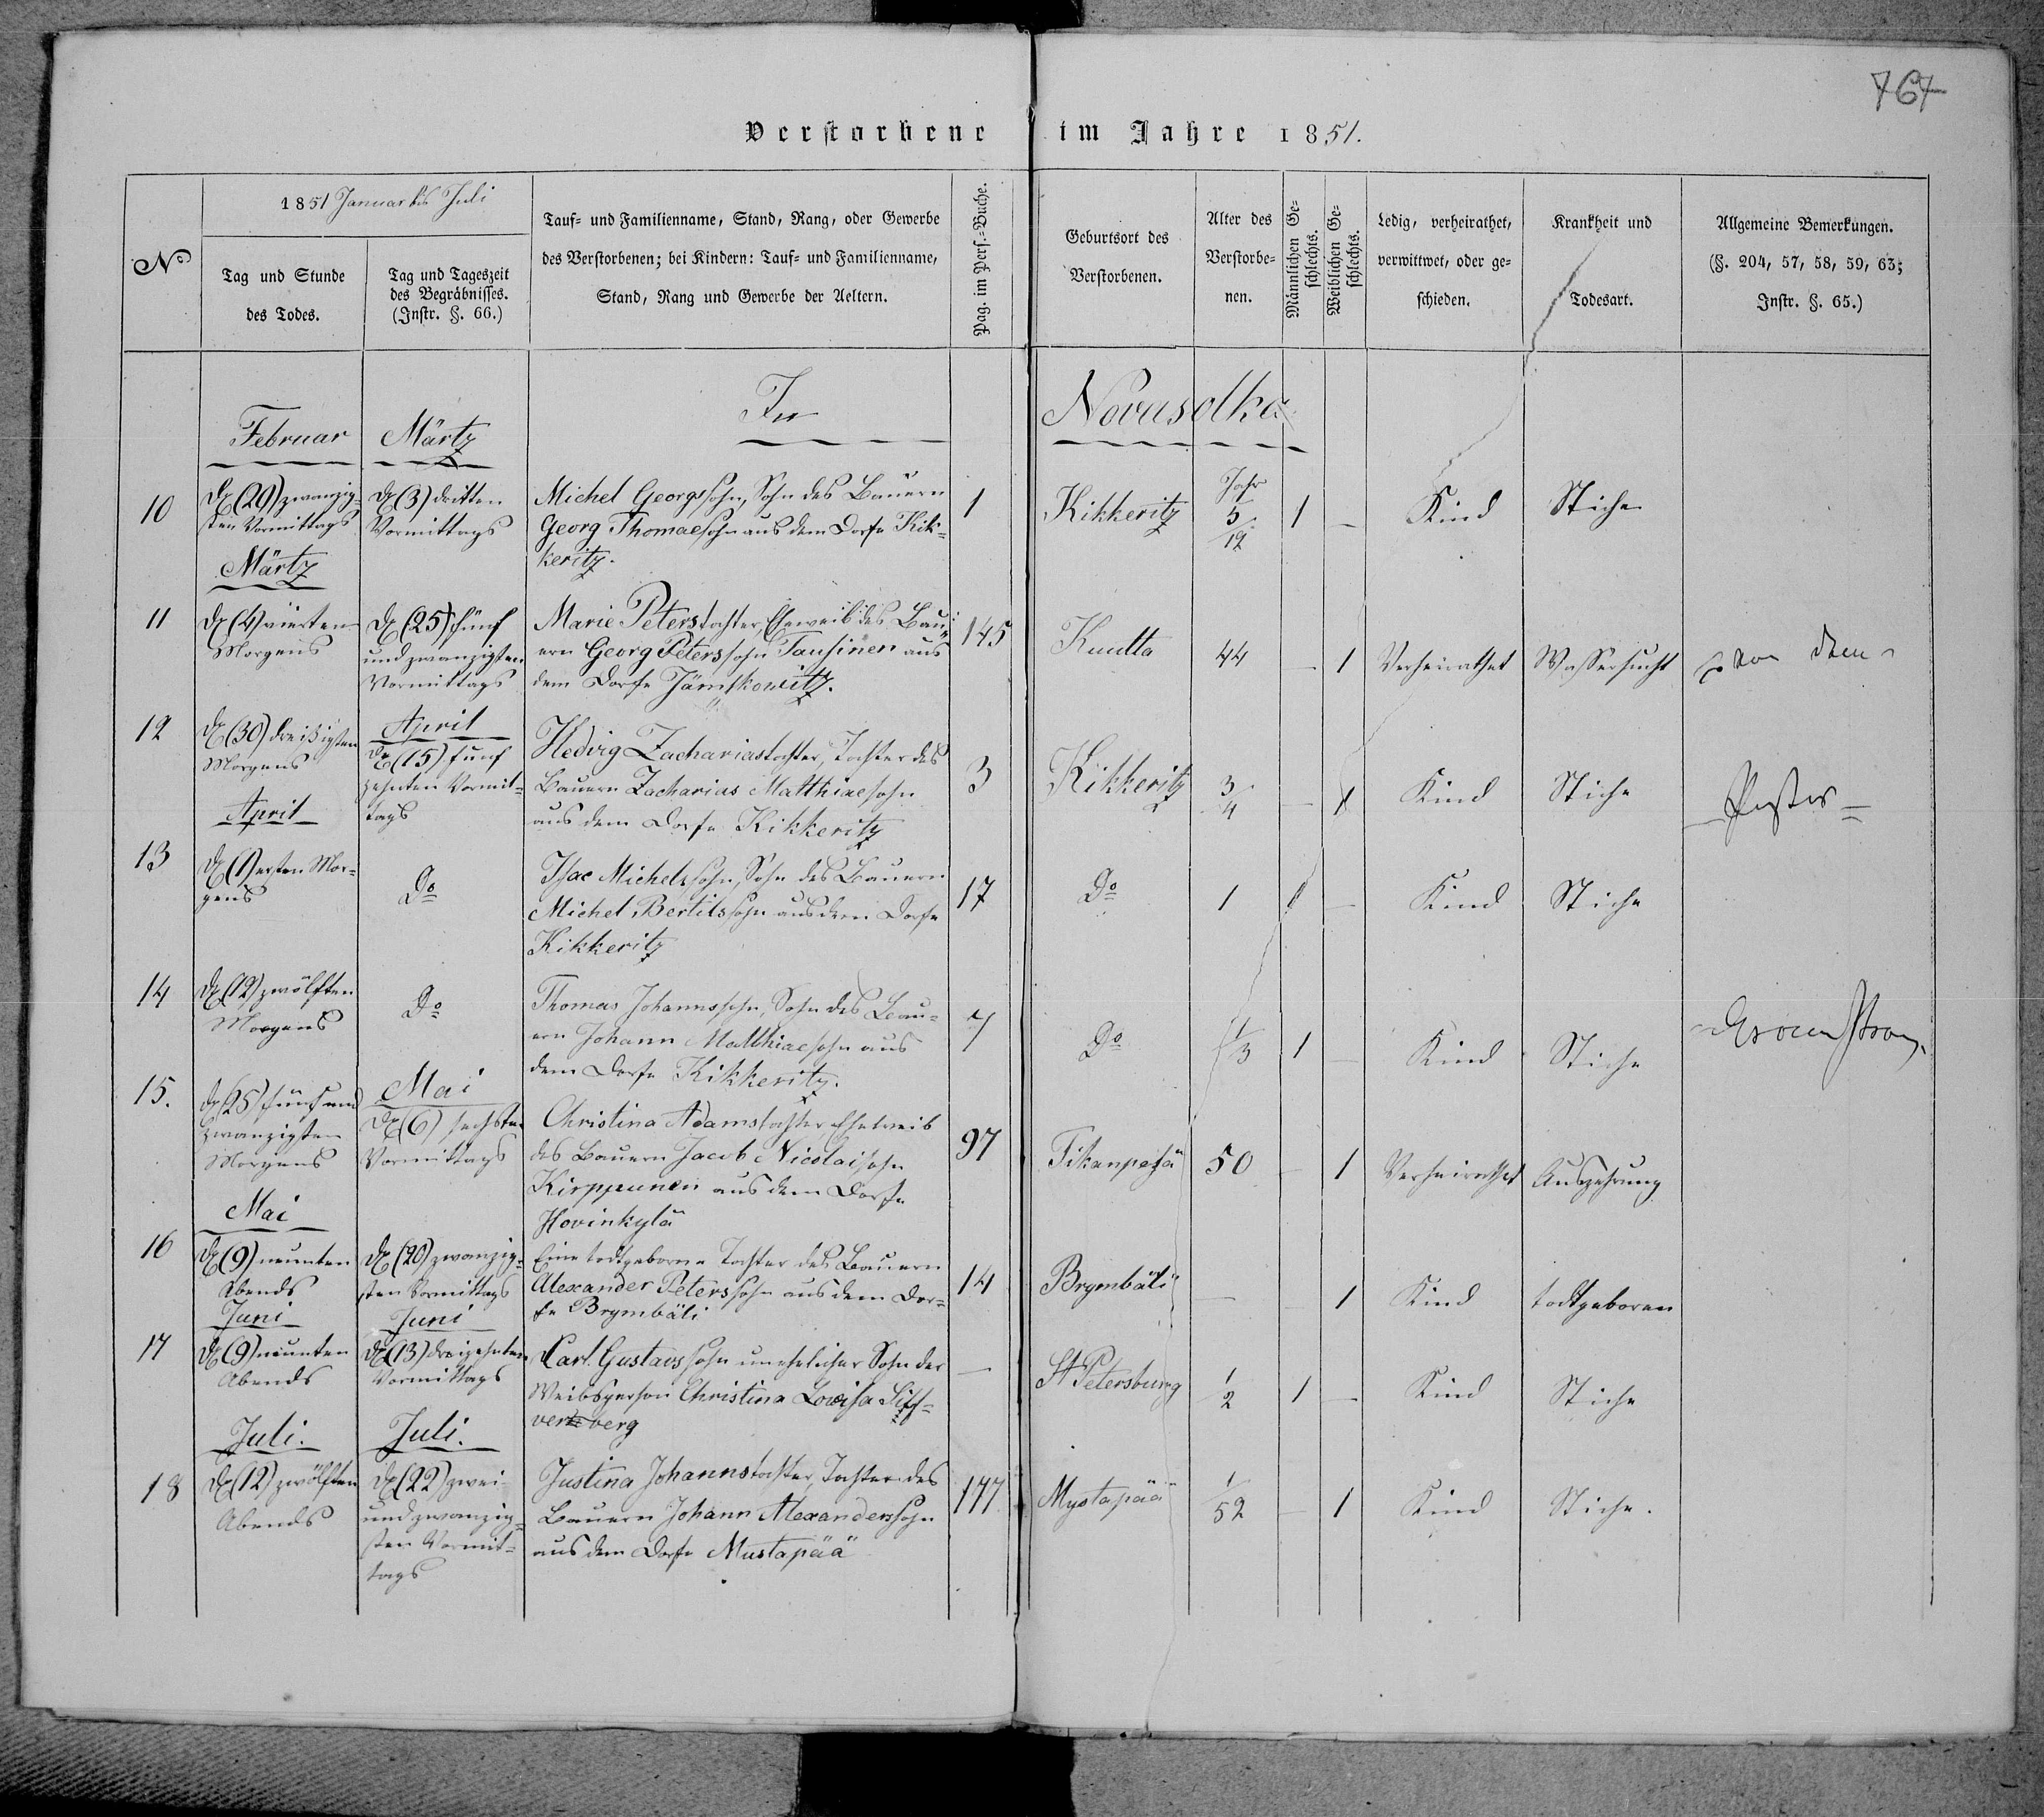 767
Verstorbene im Jahre 1851.
1851 Januar bis Juli
No
Tag und Stunde
des Todes.
Tag und Tageszeit
des Begräbnisses.
(Instr. §. 66.)
Tauf- und Familienname, Stand, Rang, oder Gewerbe
des Verstorbenen; bei Kindern: Tauf- und Familienname,
Stand, Rang und Gewerbe der Aeltern.
Pag. im Pers.-Buche.
Geburtsort des
Verstorbenen.
Alter des
Verstorbe-
nen.
Männlichen Ge-
schlechts.
Weiblichen Ge-
schlechts.
Ledig, verheirathet,
verwittwet, oder ge-
schieden.
Krankheit und
Todesart.
Allgemeine Bemerkungen.
(§. 204, 57, 58, 59, 63;
Instr. §. 65.)
In Novusolka
Februar
Märtz
10
(20) zwanzig-
sten Vormittags
(3) dritten
Vormittags
Michel Georgssohn, Sohn des Bauern
Georg Thomaesohn aus dem Dorfe Kik-
keritz.
1
Kikkeritz
Jahr
5/12
1 –
Kind
Stiche
Märtz
11
(4) vierten
Morgens
(25) fünf
und zwanzigsten
Vormittags
Marie Peterstochter, Eheweib des Bau-
ern Georg Peterssohn Tausinen aus
dem Dorfe Jämskowitz.
145
Kuutta
44
– 1
Verheirathet
Wassersucht
12
(30) dreißigsten
Morgens
April
(15) fünf
zehnten Vormit-
tags
Hedvig Zachariastochter, Tochter des
Bauern Zacharias Matthiaesohn
aus dem Dorfe Kikkeritz
3
Kikkeritz
3/4
– 1
Kind
Stiche
Pastor
April
13
(1) ersten Mor-
gens
Do
Isac Michelssohn, Sohn des Bauern
Michel Bertilssohn aus dem Dorfe
Kikkeritz
17
Do
1
1 –
Kind
Stiche
14
(12) zwölften
Morgens
Do
Thomas Johannssohn, Sohn des Bau-
ern Johann Matthiaesohn aus
dem Dorfe Kikkeritz.
7
Do
1/3
1 –
Kind
Stiche
15.
(25) fünf und
zwanzigsten
Morgens
Mai
(6) sechsten
Vormittags
Christina Adamstochter, Eheweib
des Bauern Jacob Nicolaisohn
Kirppunen aus dem Dorfe
Hovinkylä
97
Tikanpesä
50
– 1
Verheirathet
Auszehrung
Mai
16
(9) neunten
Abends
(20) zwanzig-
sten Vormittags
Eine todtgeborne Tochter des Bauern
Alexander Peterssohn aus dem Dor-
fe Brymbäli
14
Brymbäli
–
1
Kind
todtgeboren
Juni
Juni
17
(9) neunten
Abends
(13) dreizehnten
Vormittags
Carl Gustavssohn unehelicher Sohn der
Weibsperson Christina Lovisa
berg
–
St Petersburg
1/2
1 –
Kind
Stiche
Juli.
Juli.
18
(12) zwölften
Abends
(22) zwei
und zwanzig-
sten Vormit-
tags
Justina Johannstochter, Tochter des
Bauern Johann Alexanderssohn
aus dem Dorfe Mustapää
177
Mystapää
1/52
– 1
Kind
Stiche.